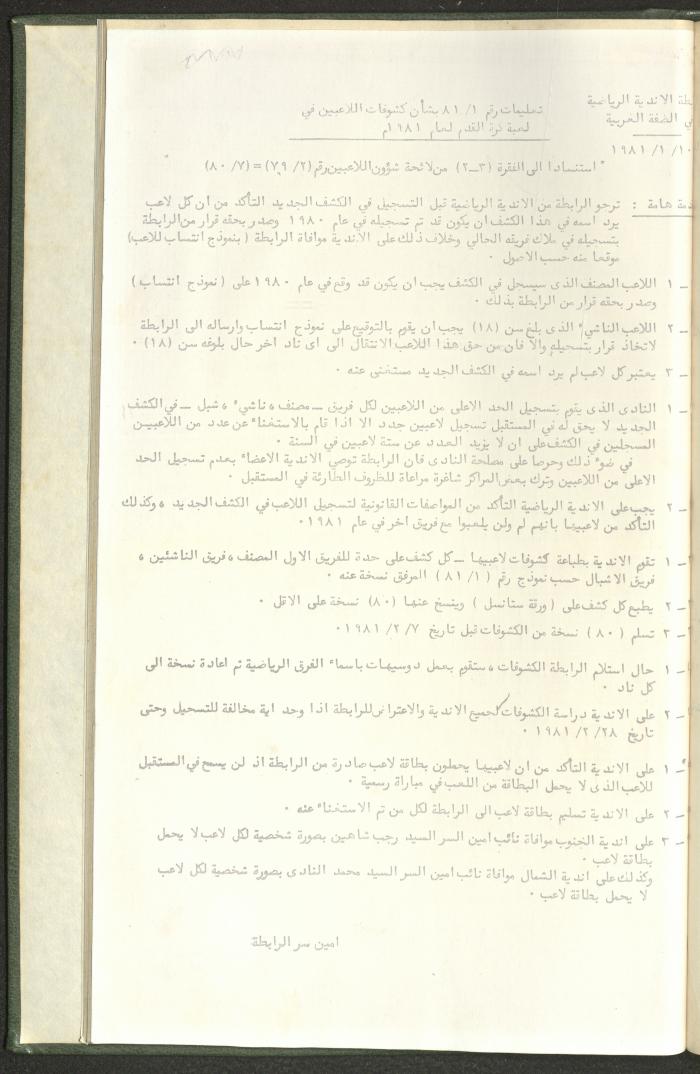 طة الاندية الرياضية
ي الضفة الغربية
١٠/ ١/ ١٩٨١
تعليمات رقم ٨١/١ بشأن كشوفات اللاعبين في
لعبة كرة القدم لعام ١٩٨١م
* استنسادا الى الفقرة (٣ــ٢) من لائحة شؤون اللاعبين رقم (٢/ ٧٩) = (٧/ ٨٠)
دمة هامة : ترجو الرابطة من الاندية الرياضية قبل التسجيل في الكشف الجديد التأكد من ان كل لاعب
يرد اسمه في هذا الكشف ان يكون قد تم تسجيله في عام ١٩٨٠ وصدر بحقه قرار من الرابطة
بتسجيله في ملاك فريقه الحالي وخلاف ذلك على الاندية موافاة الرابطة ( بنموذج انتساب للاعب)
موقعا منه حسب الاصول ٠
ــ ١ اللاعب المصنف الذى سيسجل في الكشف يجب ان يكون قد وقع في عام ١٩٨٠ على ( نموذج انتساب )
وصدر بحقه قرار من الرابطة بذلك ٠
ــ ٢ اللاعب الناشيء الذى بلغ سن (١٨) يجب ان يقوم بالتوقيع على نموذج انتساب وارساله الى الرابطة
لاتخاذ قرار بتسجيله والا فان من حق هذا اللاعب الانتقال الى اى ناد اخر حال بلوغه سن (١٨) ٠
ــ ٣ يعتبر كل لاعب لم يرد اسمه في الكشف الجديد مستغنى عنه ٠
ــ ١ النادى الذى يقوم بتسجيل الحد الاعلى من اللاعبين لكل فريق ــ مصنف ، ناشيء ، شبل ــ في الكشف
الجديد لا يحق له في المستقبل تسجيل لاعبين جدد الا اذا قام بالاستغناء عن عدد من اللاعبين
المسجلين في الكشف على ان لا يزيد العدد عن ستة لاعبين في السنة ٠
في ضوء ذلك وحرصا على مصلحة النادى فان الرابطة توصي الاندية الاعضاء بعدم تسجيل الحد
الاعلى من اللاعبين وترك بعض المراكز شاغرة مراعاة للظروف الطارئة في المستقبل ٠
ــ ٢ يجب على الاندية الرياضية التأكد من المواصفات القانونية لتسجيل اللاعب في الكشف الجديد ، وكذلك
التأكد من لاعبيها بانهم لم ولن يلعبوا مع فريق آخر في عام ١٩٨١٠
ــ ١ تقوم الاندية بطباعة كشوفات لاعبيها ــ كل كشف على حدة للفريق الاول المصنف ، فريق الناشئين ،
فريق الاشبال حسب نموذج رقم ( ١/ ٨١ ) المرفق نسخة عنه ٠
ــ ٢ يطبع كل كشف على ( ورقة ستانسل ) وينسخ عنها (٨٠) نسخة على الاقل ٠
ــ ٣ تسلم ( ٨٠ ) نسخة من الكشوفات قبل تاريخ ٧/ ٢/ ١٩٨١٠
ــ ١ حال استلام الرابطة الكشوفات ، ستقوم بعمل دوسيهات باسماء الفرق الرياضية ثم اعادة نسخة الى
كل ناد ٠
ــ ٢ على الاندية دراسة الكشوفات لجميع الاندية والاعتراض للرابطة اذا وجد اية مخالفة للتسجيل وحتى
تاريخ ٢٨/ ٢/ ١٩٨١ ٠
ــ ١ على الاندية التأكد من ان لاعبيها يحملون بطاقة لاعب صادرة من الرابطة اذ لن يسمح في المستقبل
للاعب الذى لا يحمل البطاقة من اللعب في مباراة رسمية ٠
ــ ٢ على الاندية تسليم بطاقة لاعب الى الرابطة لكل من تم الاستغناء عنه ٠
ــ ٣ على اندية الجنوب موافاة نائب امين السر السيد رجب شاهين بصورة شخصية لكل لاعب لا يحمل
بطاقة لاعب ٠
وكذلك على اندية الشمال موافاة نائب امين السر السيد محمد النادى بصورة شخصية لكل لاعب
لا يحمل بطاقة لاعب ٠
امين سر الرابطة